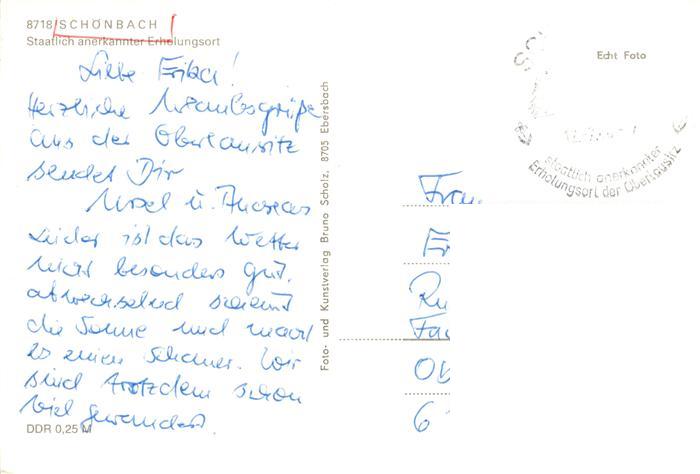 8718 SCHÖNBACH
Staatlich anerkannter Erholungsort
Liebe Erika!
Herzliche Urlaubsgrüße
aus der Oberlausitz
sendet Dir
Ursel u. Andreas
Leider ist das Wetter
nicht besonders gut,
abwechselnd scheint
die Sonne und macht
es einen Schauer. Wir
sind trotzdem schon
viel gewandert.
DDR 0,25 M
Foto- und Kunstverlag Bruno Scholz, 8705 Ebersbach
Echt Foto
staatlich anerkannter
Erholungsort der Oberlausitz
Frau
Er
Ru
Fa
Ob
6